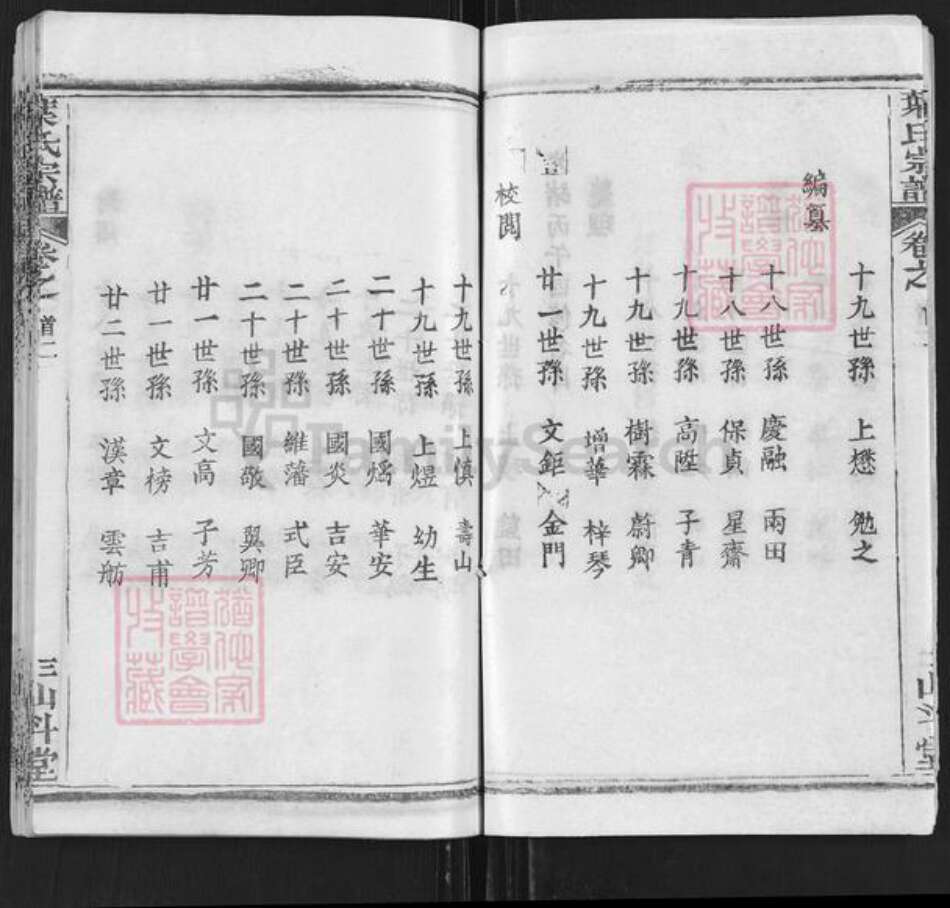 葉氏宗譜 卷之
十九世孫 上懋 勉之
編纂
十八世孫 慶融 雨田
十八世孫 保貞 星齋
十九世孫 高陞 子青
十九世孫 樹霖 蔚卿
十九世孫 增華 梓琴
廿一世孫 文鉅 金門
校閱
十九世孫 上慎 壽山
十九世孫 上煜 幼生
二十世孫 國燏 華安
二十世孫 國炎 吉安
二十世孫 維藩 式臣
二十世孫 國敬 翼卿
廿一世孫 文高 子芳
廿一世孫 文榜 吉甫
廿二世孫 漢章 雲舫
葉氏宗譜 卷之一 首二 三山斗堂
FamilySearch
猶他家譜學會收藏
猶他家譜學會收藏